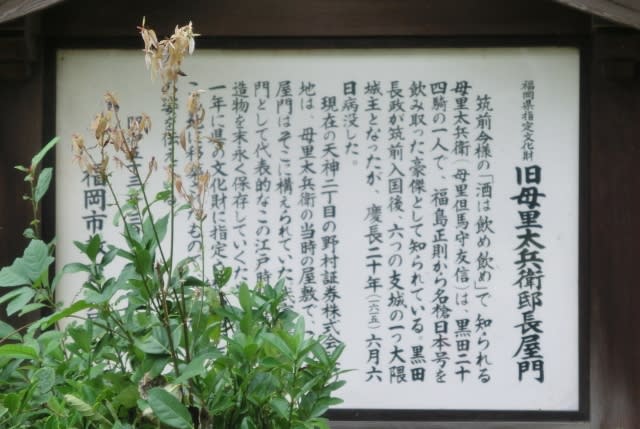 福岡県指定文化財
旧母里太兵衛邸長屋門
筑前今様の「酒は飲め飲め」で知られる
母里太兵衛(母里但馬守友信)は、黒田二十
四騎の一人で、福島正則から名槍日本号を
飲み取った豪傑として知られている。黒田
長政が筑前入国後、六つの支城の一つ大隈
城主となったが、慶長二十年(一六一五)六月六
日病没した。
現在の天神二丁目の野村証券株式会
地は、母里太兵衛の当時の屋敷で、
屋門はそこに構えられていた
門として代表的なこの江戸時
造物を末永く保存していくた
一年に県の文化財に指定
したもの
の姿を伝え
福岡市